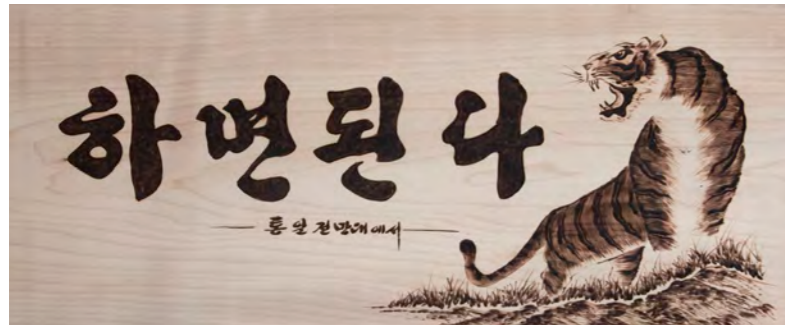 하면된다
통일전망대에서